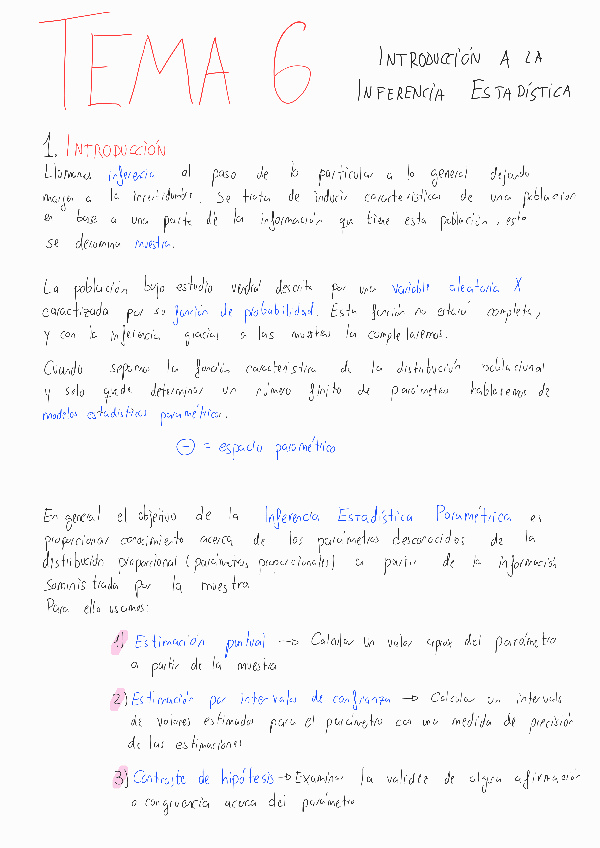 TEMA 6
INTRODUCCIÓN A LA
INFERENCIA ESTADÍSTICA
1. INTRODUCCIÓN
Llamamos inferencia al paso de lo particular a lo general dejando
margen a la incertidumbre. Se trata de inducir características de una población
en base a una parte de la información que tiene esta población, esto
se denomina muestra.
La población bajo estudio vendrá descrita por una variable aleatoria X
caractizada por su función de probabilidad. Esta función no estará completa,
y con la inferencia gracias a las muestras la completaremos.
Cuando sepamos la función característica de la distribución poblacional
y solo quede determinar un número finito de parámetros hablaremos de
modelos estadísticos paramétricos.
Θ = espacio paramétrico
En general el objetivo de la Inferencia Estadística Paramétrica es
proporcionar conocimiento acerca de los parámetros desconocidos de la
distribución proporcional (parámetros proporcionales) a partir de la información
suministrada por la muestra
Para ello usamos:
1) Estimación puntual → Calcular un valor aprox del parámetro
a partir de la muestra
2) Estimación por intervalos de confianza → Calcular un intervalo
de valores estimados para el parámetro con una medida de precisión
de las estimaciones
3) Contraste de hipótesis → Examinar la validez de alguna afirmación
o congruencia acerca del parámetro